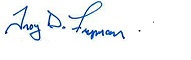 Troy D. Fryman